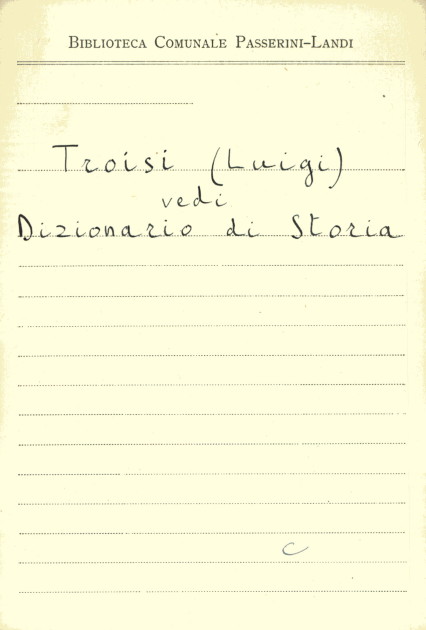 Biblioteca Comunale Passerini-Landi
Troisi (Luigi)
vedi
Dizionario di Storia
C